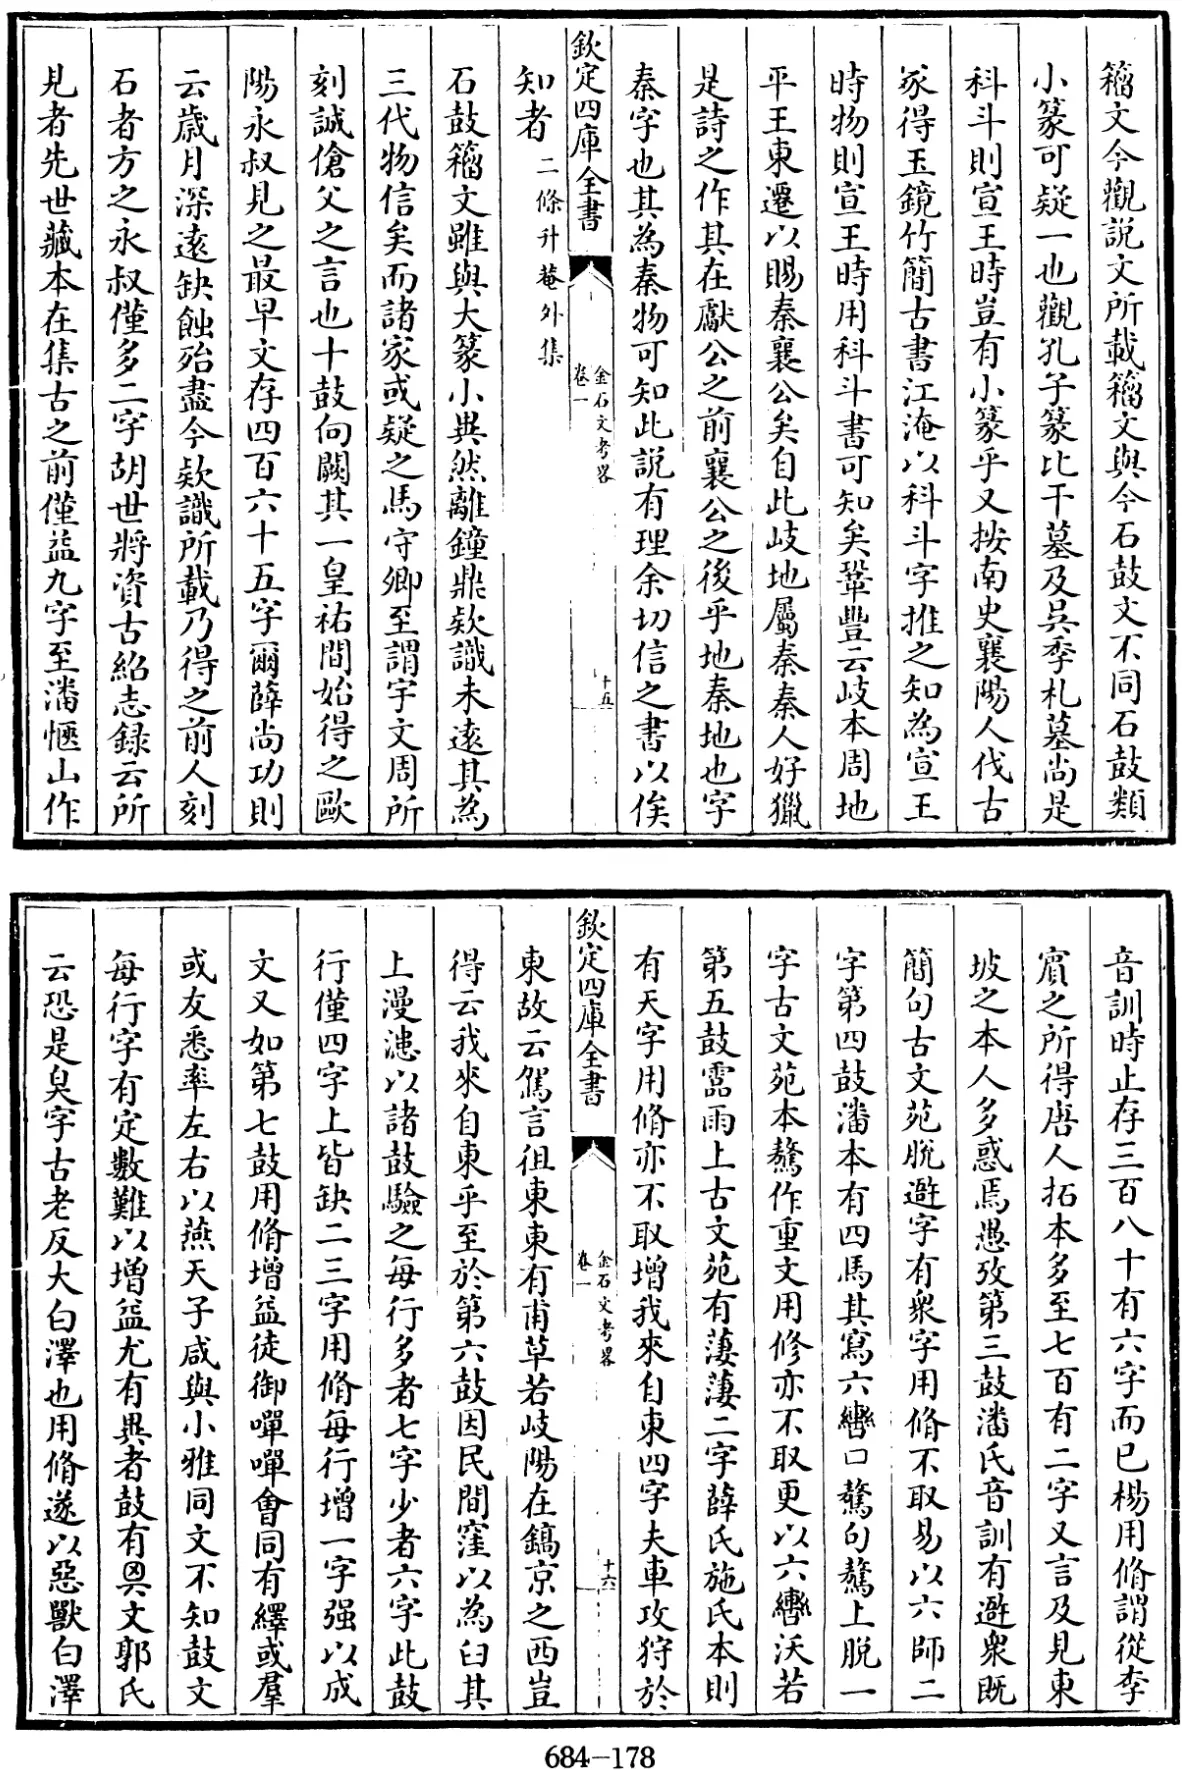 籀文今觀説文所載籀文與今石鼓文不同石鼓類
小篆可疑一也觀孔子篆比干墓及吳季札墓尚是
科斗則宣王時豈有小篆乎又按南史襄陽人伐古
冢得玉鏡竹簡古書江淹以科斗字推之知為宣王
時物則宣王時用科斗書可知矣鞏豐云岐本周地
平王東遷以賜秦襄公矣自此岐地屬秦秦人好獵
是詩之作其在獻公之前襄公之後乎地秦地也字
秦字也其為秦物可知此説有理余切信之書以俟
欽定四庫全書
金石文考畧
卷一
十五
知者二條升菴外集
石鼓籀文雖與大篆小異然離鐘鼎欵識未遠其為
三代物信矣而諸家或疑之馬守卿至謂宇文周所
刻誠傖父之言也十鼓向闕其一皇祐間始得之歐
陽永叔見之最早文存四百六十五字爾薛尚功則
云歲月深遠缺蝕殆盡今欵識所載乃得之前人刻
石者方之永叔僅多二字胡世將資古紹志録云所
見者先世藏本在集古之前僅益九字至潘愜山作
音訓時止存三百八十有六字而已楊用脩謂從李
賔之所得唐人拓本多至七百有二字又言及見東
坡之本人多惑焉愚攷第三鼓潘氏音訓有遊衆既
簡句古文苑脱遊字有衆字用脩不取易以六師二
字第四鼓潘本有四馬其寫六轡口驁句驁上脱一
字古文苑本驁作重文用修亦不取更以六轡沃若
第五鼓霝雨上古文苑有淒淒二字薛氏施氏本則
有天字用脩亦不取增我來自東四字夫車攻狩於
欽定四庫全書
金石文考畧
卷一
十六
東故云駕言徂東東有甫草若岐陽在鎬京之西豈
得云我來自東乎至於第六鼓因民間窪以為臼其
上漫漶以諸鼓驗之每行多者七字少者六字此鼓
行僅四字上皆缺二三字用脩每行增一字强以成
文又如第七鼓用脩增益徒御嘽嘽會同有繹或羣
或友悉率左右以燕天子咸與小雅同文不知鼓文
每行字有定數難以增益尤有異者鼓有㚖文郭氏
云恐是臭字古老反大白澤也用脩遂以惡獸白澤
684-178